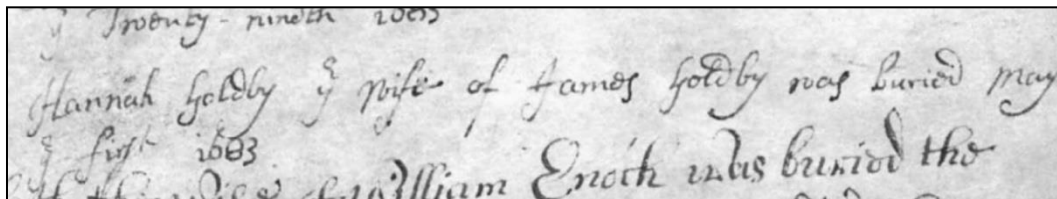 yͤ Twenty-nineth 1683
Hannah Holdby yͤ wife of James Holdby was buried May
yͤ first 1683
William Enoch was buried the